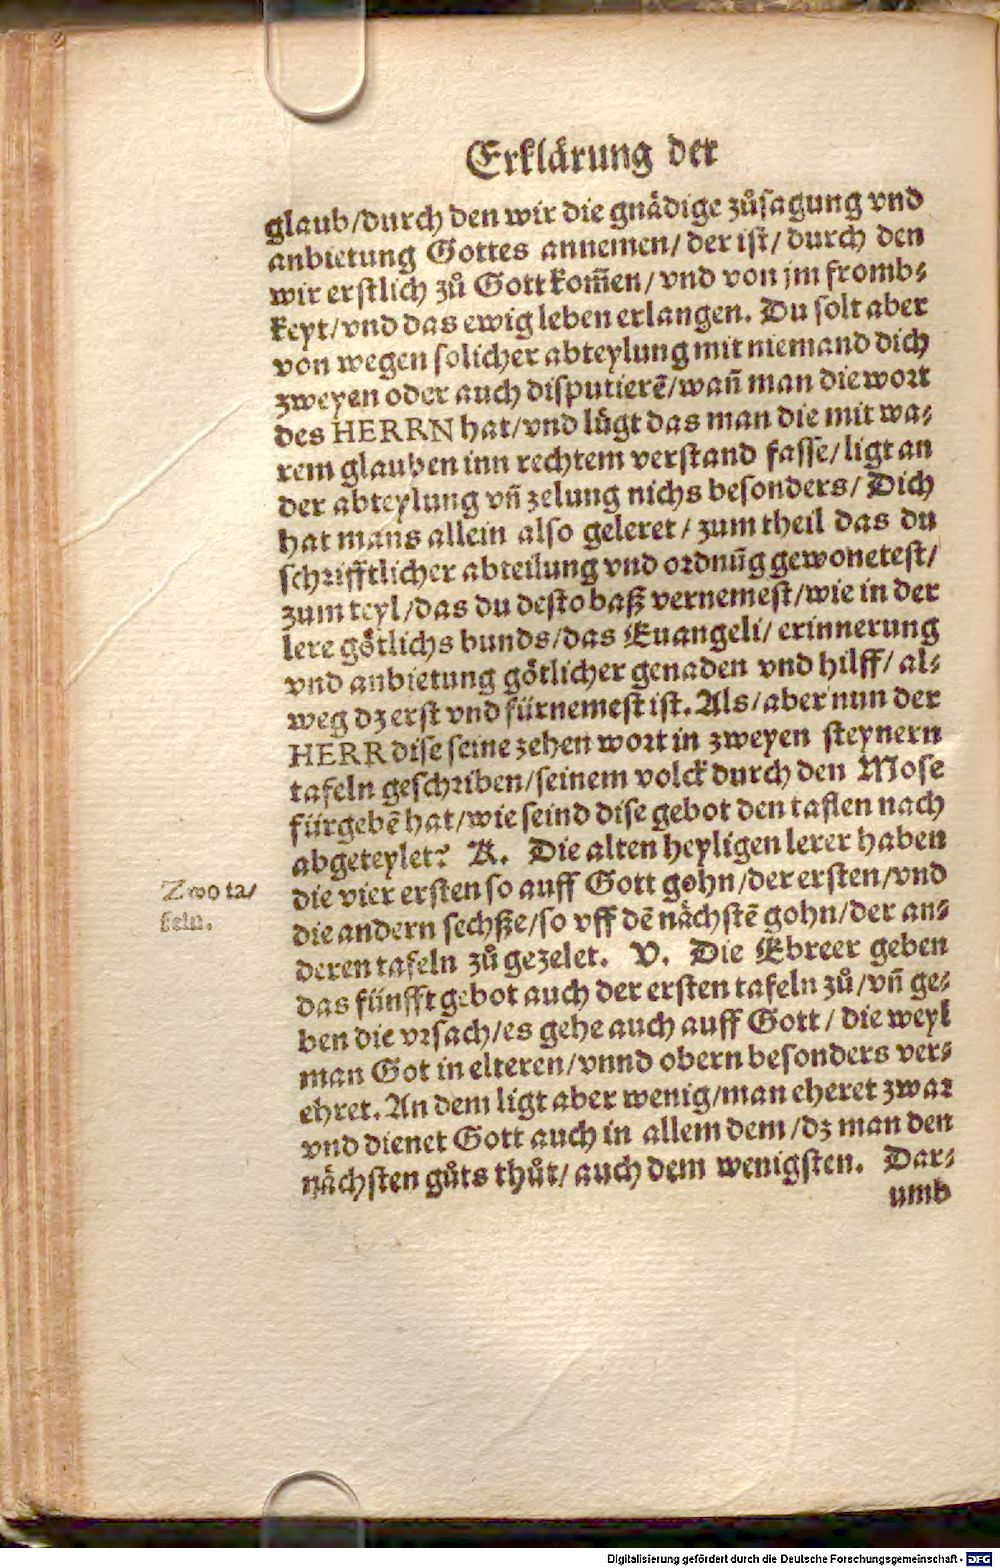 Erklärung der
glaub/durch den wir die gnädige zůsagung vnd
anbietung Gottes annemen/ der ist/ durch den
wir erstlich zů Gott kom̃en/ vnd von jm fromb⸗
keyt/vnd das ewig leben erlangen. Du solt aber
von wegen solicher abteylung mit niemand dich
zweyen oder auch disputierẽ/wañ man die wort
des HERRN hat/vnd lůgt das man die mit wa⸗
rem glauben inn rechtem verstand fasse/ ligt an
der abteylung vñ zelung nichs besonders/ Dich
hat mans allein also geleret/ zum theil das du
schrifftlicher abteilung vnd ordnũg gewonetest/
zum teyl/das du desto baß vernemest/wie in der
lere gŏtlichs bunds/das Euangeli/ erinnerung
vnd anbietung gŏtlicher genaden vnd hilff/ al⸗
weg dz erst vnd fürnemest ist. Als/aber nun der
HERR dise seine zehen wort in zweyen steynern
tafeln geschriben/seinem volck durch den Mose
fürgebẽ hat/wie seind dise gebot den taflen nach
abgeteylet? A. Die alten heyligen lerer haben
Zwo ta/
feln.
die vier ersten so auff Gott gohn/der ersten/vnd
die andern sechße/so vff dẽ nächstẽ gohn/der an⸗
deren tafeln zů gezelet. V. Die Ebreer geben
das fünfft gebot auch der ersten tafeln zů/vñ ge⸗
ben die vrsach/es gehe auch auff Gott/ die weyl
man Got in elteren/vnnd obern besonders ver⸗
ehret. An dem ligt aber wenig/man eheret zwar
vnd dienet Gott auch in allem dem/dz man den
nächsten gůts thůt/ auch dem wenigsten. Dar⸗
umb
Digitalisierung gefördert durch die Deutsche Forschungsgemeinschaft - DFG